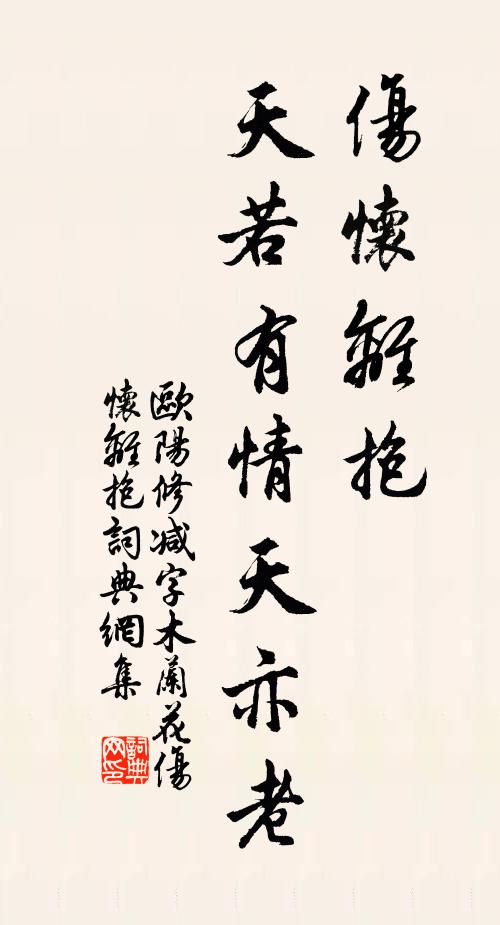 傷懷離抱
天若有情天亦老
歐陽修減字木蘭花傷
懷離抱詞典網集
詞典
网印